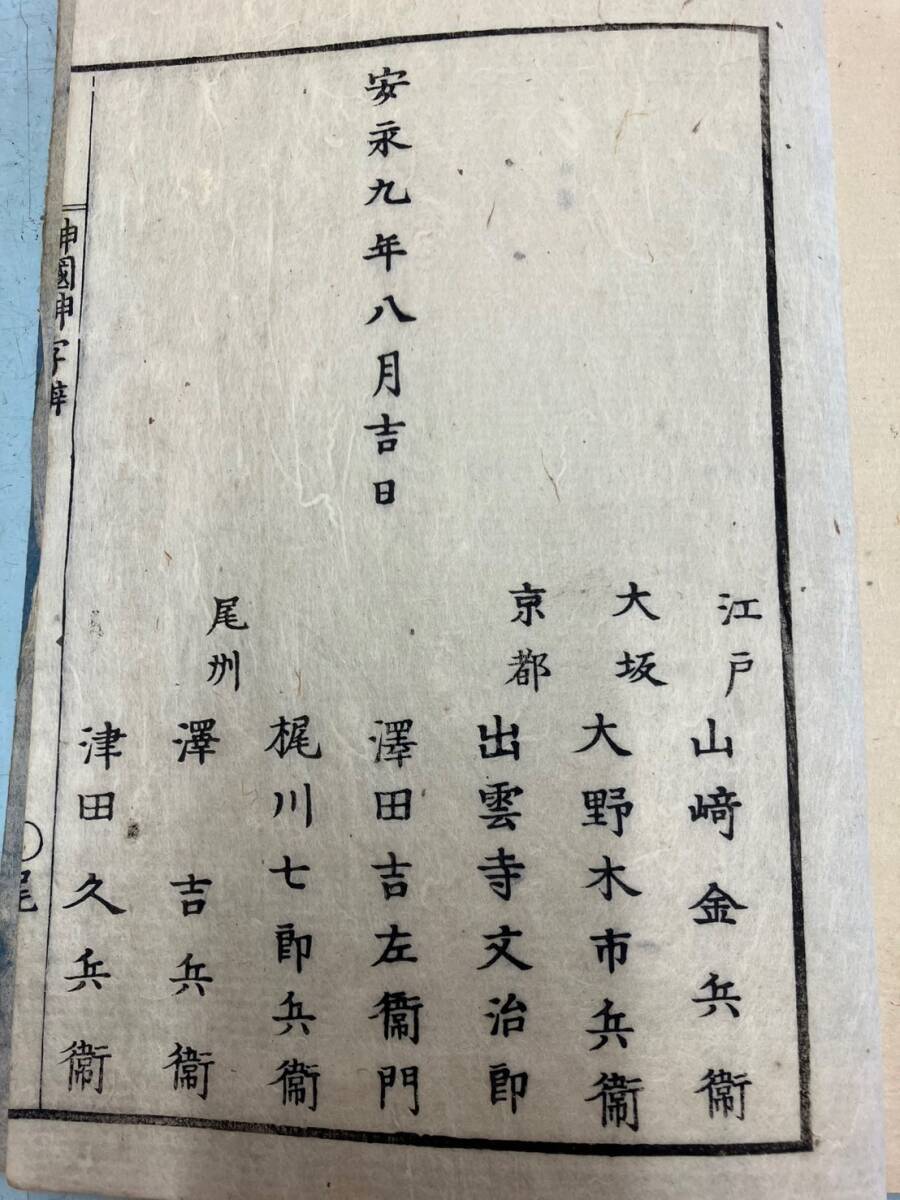 安永九年八月吉日
江戸 山﨑金兵衛
大坂 大野木市兵衛
京都 出雲寺文治郎
澤田吉左衛門
梶川七郎兵衛
尾州 澤吉兵衛
津田久兵衛
神國神字辧
〇尾